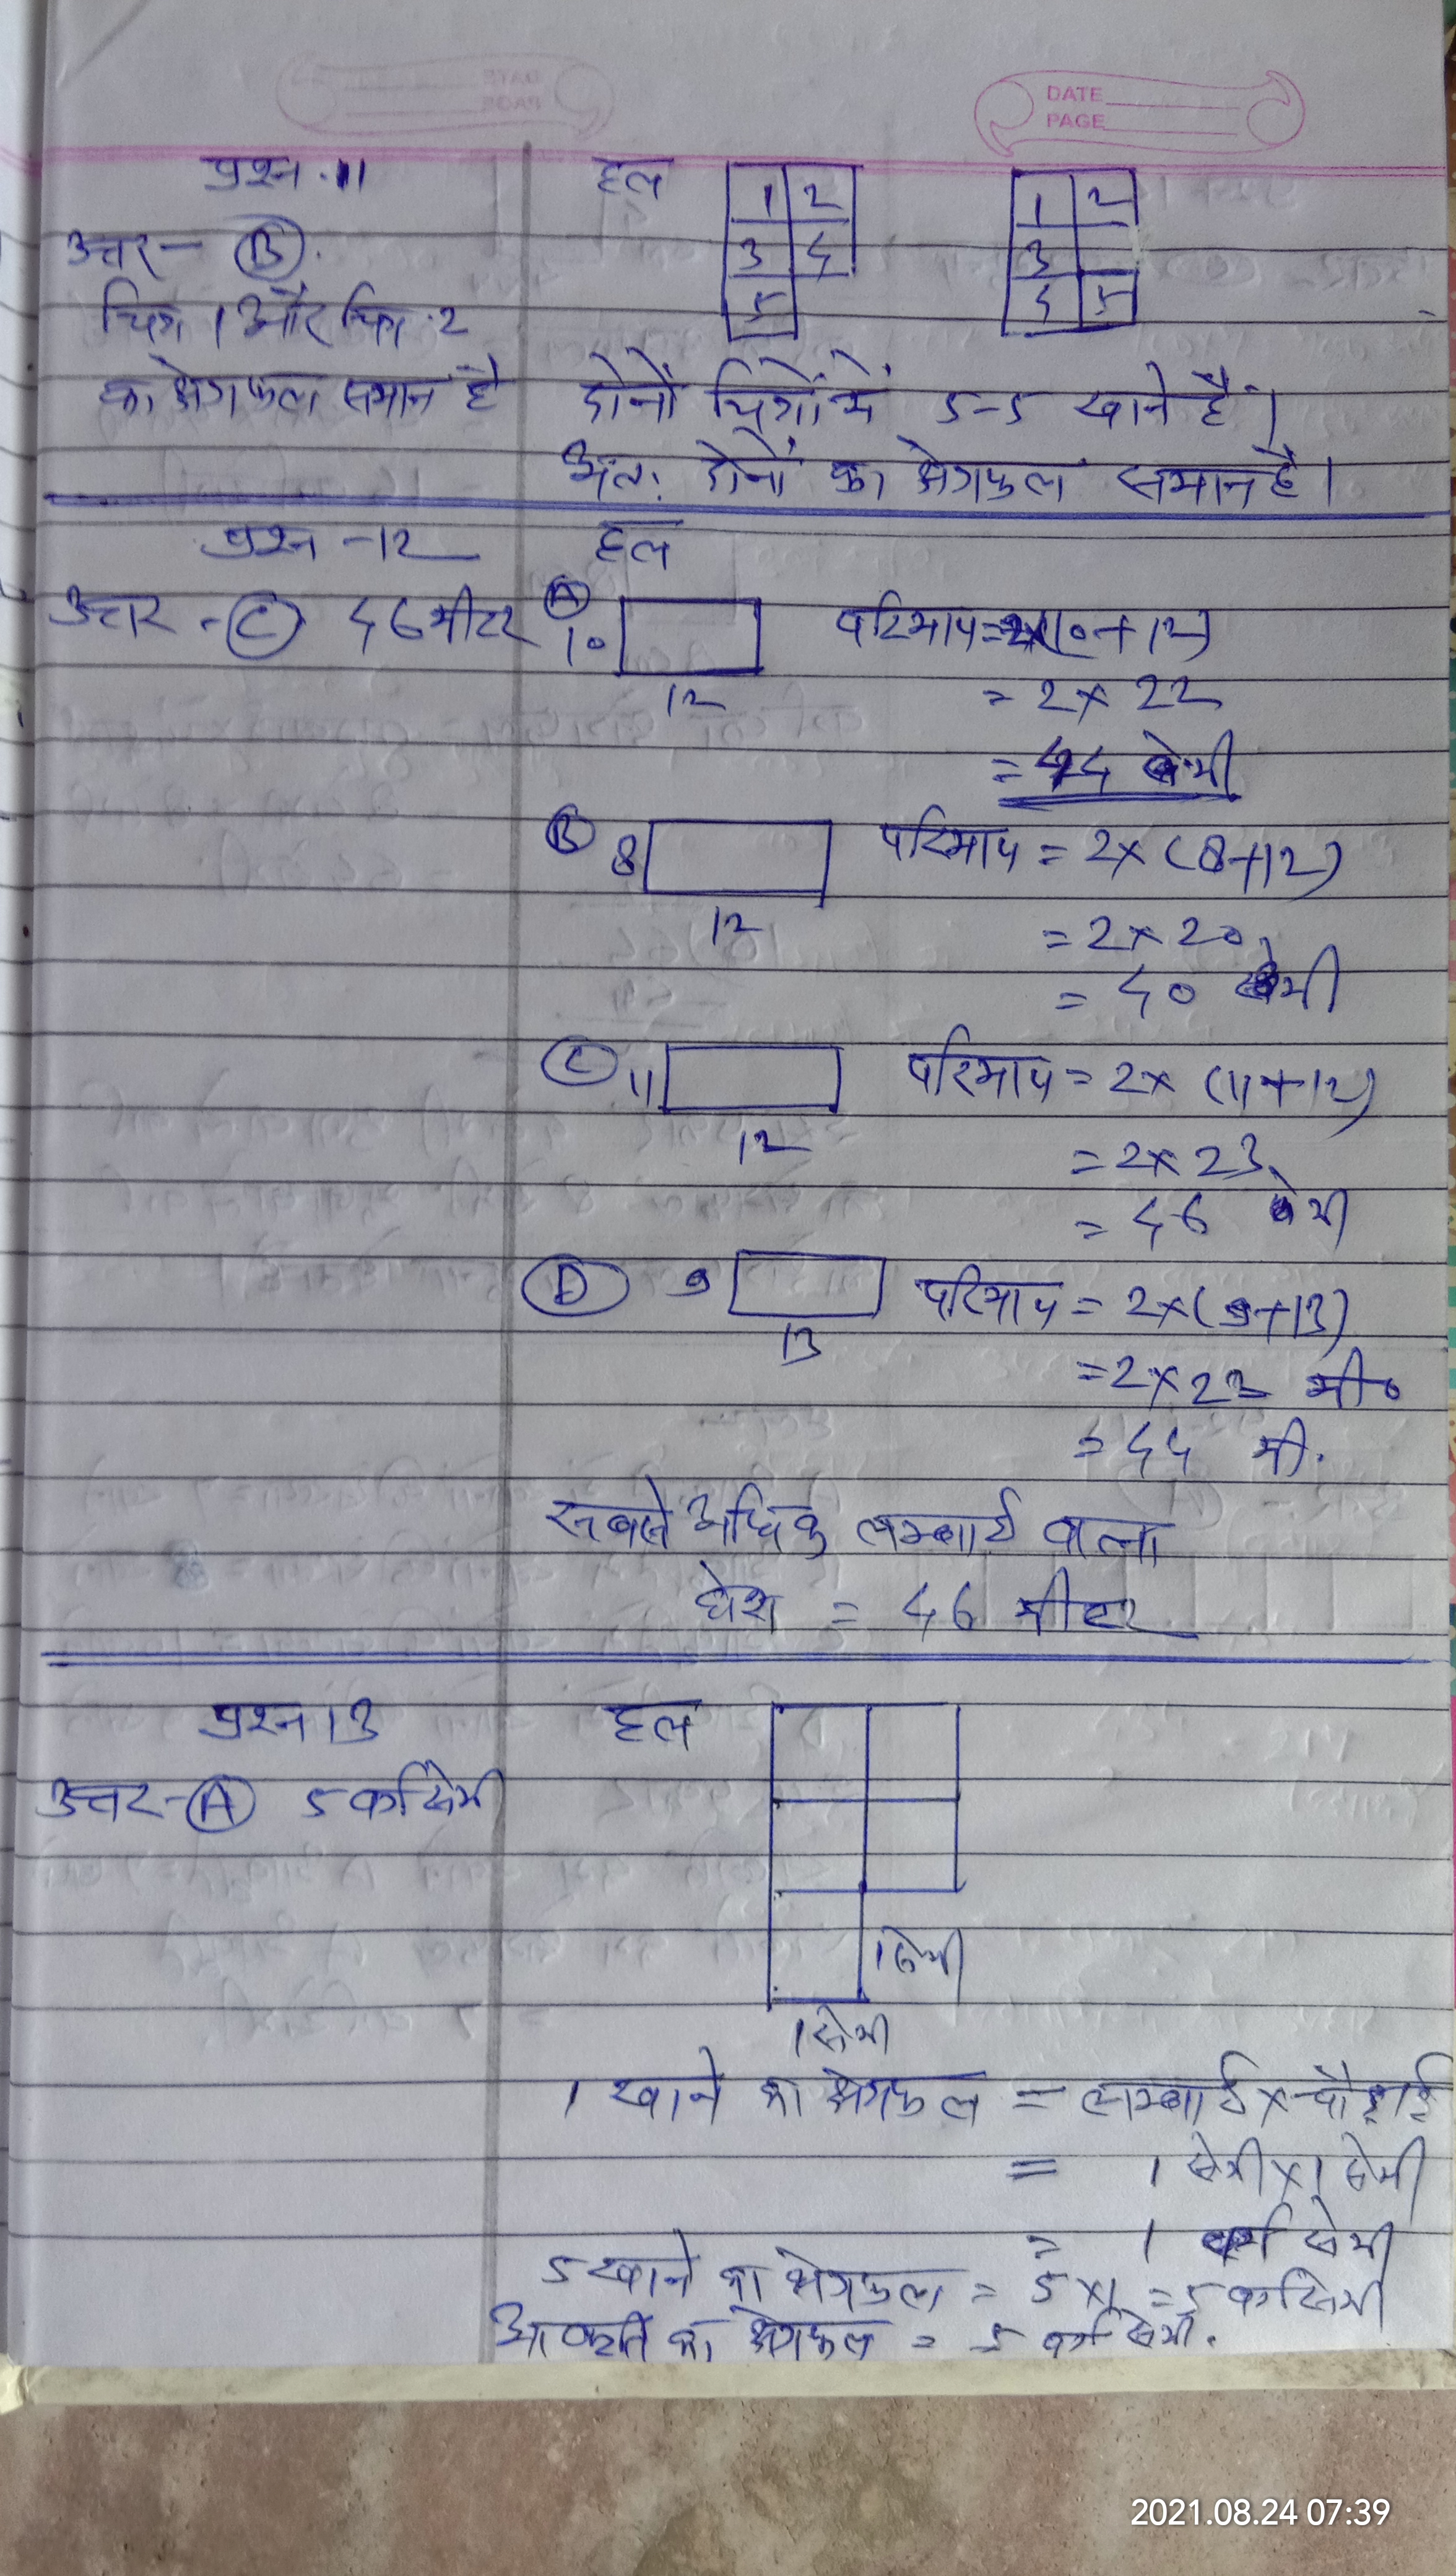 DATE
PAGE
प्रश्न.11
उत्तर- (B).
चित्र 1 और चित्र 2
का क्षेत्रफल समान है
हल
1 2
3 4
5
1 2
3
4 5
दोनों चित्रों में 5-5 खाने हैं।
अतः दोनों का क्षेत्रफल समान है।
प्रश्न -12
उत्तर -(C) 46 मीटर
हल
(A)
10
12
परिमाप = 2x(10+12)
= 2 x 22
= 44 सेमी
(B) 8
12
परिमाप = 2x (8+12)
= 2 x 20
= 40 सेमी
(C) 11
12
परिमाप = 2x (11+12)
= 2x 23
= 46 सेमी
(D) 9
13
परिमाप = 2x(9+13)
= 2x23 मी०
= 44 मी.
सबसे अधिक लम्बाई वाला
घेरा = 46 मीटर
प्रश्न 13
उत्तर-(A) 5 वर्ग सेमी
हल
1 सेमी
1 सेमी
1 खाने का क्षेत्रफल = लम्बाई x चौड़ाई
= 1 सेमी x 1 सेमी
= 1 वर्ग सेमी
5 खाने का क्षेत्रफल = 5 x 1 = 5 वर्ग सेमी
आकृति का क्षेत्रफल = 5 वर्ग सेमी.
2021.08.24 07:39